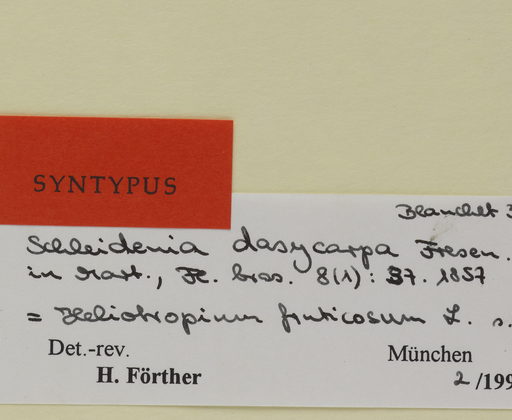 SYNTYPUS
Blanchet 3
Schleidenia dasycarpa Fresen.
in Mart., Fl. bras. 8(1): 37. 1857
= Heliotropium fruticosum L. s.
Det.-rev.
München
H. Förther
2/199